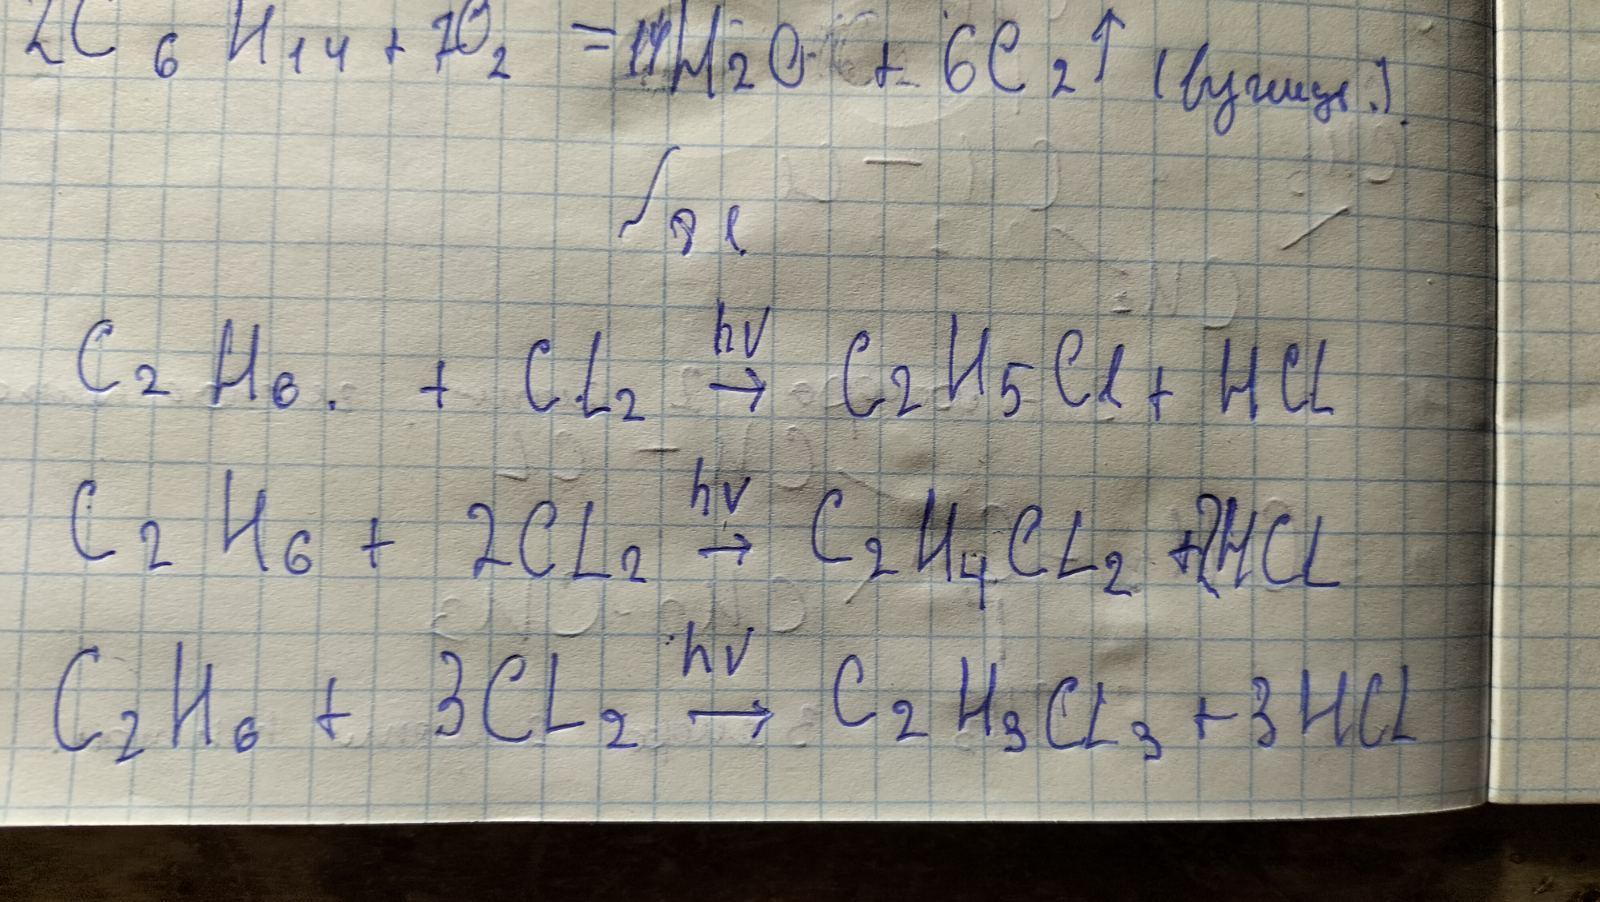 2C₆H₁₄ + 7O₂ = 14H₂O + 6C₂↑
C₂H₆. + CL₂ hν → C₂H₅Cl + HCL
C₂H₆ + 2CL₂ hν → C₂H₄CL₂ + 2HCL
C₂H₆ + 3CL₂ hν → C₂H₃CL₃ + 3HCL